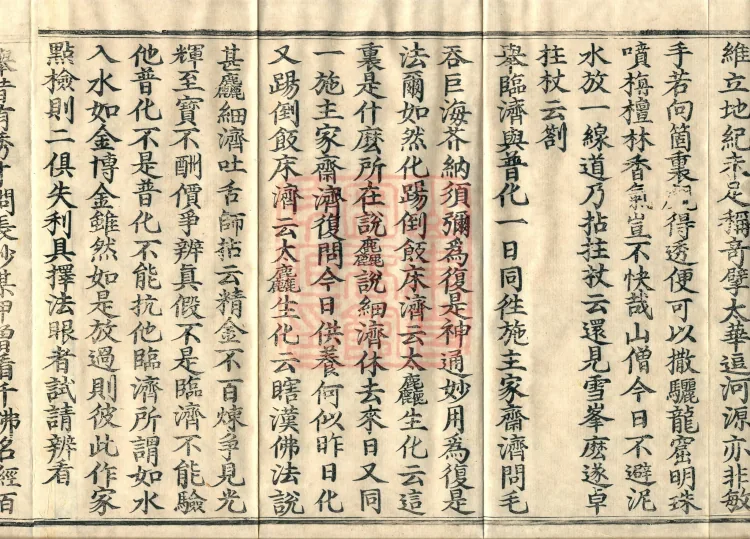 維立地紀未足稱奇擘太華逗河源亦非敏
手若向箇裏覷得透便可以撒驪龍窟明珠
噴栴檀林香氣豈不快哉山僧今日不避泥
水放一線道乃拈拄杖云還見雪峯麽遂卓
拄杖云劄
舉臨濟與普化一日同徃施主家齋濟問毛
吞巨海芥納須彌為復是神通妙用為復是
法爾如然化踢倒飯床濟云太麤生化云這
裏是什麽所在說麤說細濟休去來日又同
一施主家齋濟復問今日供養何似昨日化
又踢倒飯床濟云太麤生化云瞎漢佛法說
甚麤細濟吐舌師拈云精金不百煉爭見光
輝至寶不酬價爭辨真假不是臨濟不能驗
他普化不是普化不能抗他臨濟所謂如水
入水如金博金雖然如是放過則彼此作家
點檢則二俱失利具擇法眼者試請辨看
舉昔有秀才問長沙某甲曽看千佛名經百